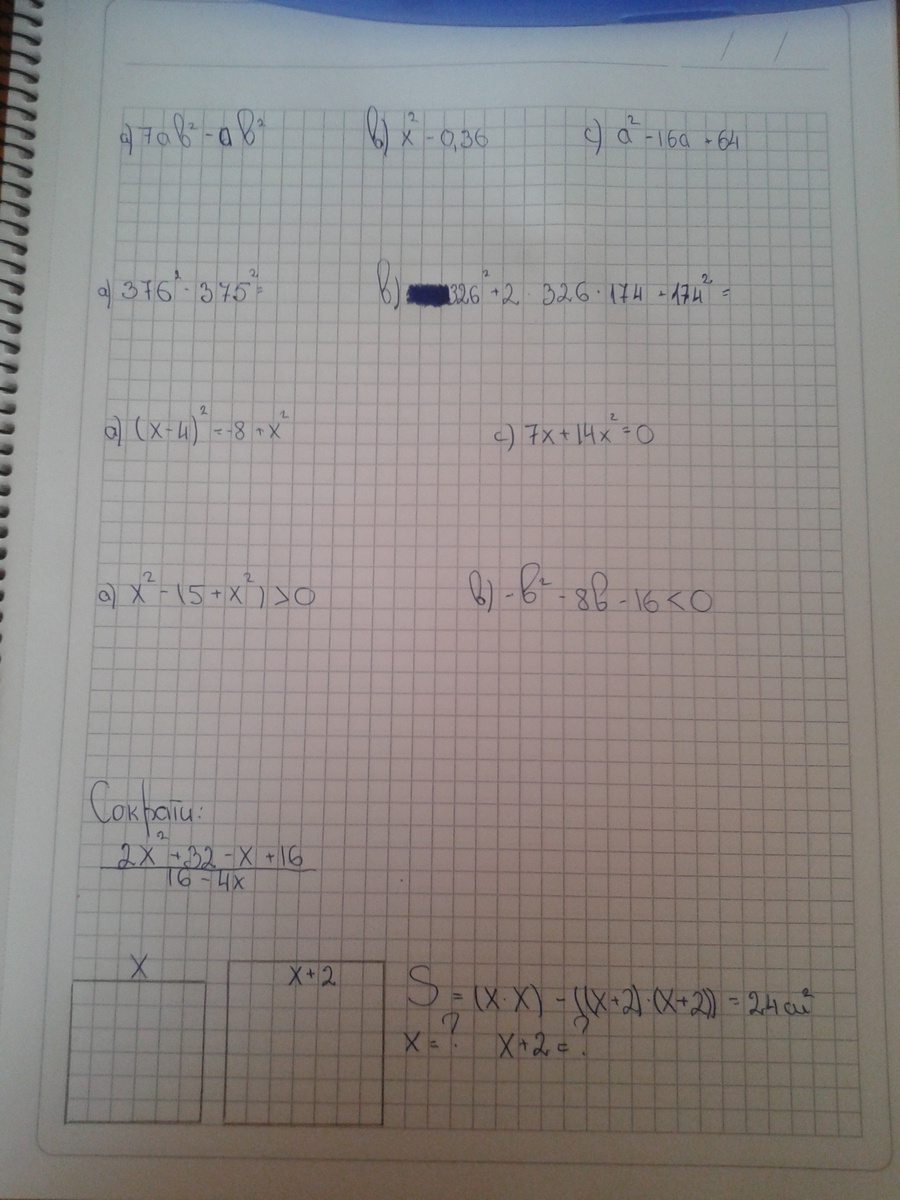 a) 7ab² - ab² b) x² - 0,36 c) a² - 16a + 64
a) 376² - 375² = b) 326² + 2 · 326 · 174 + 174² =
a) (x-4)² = -8 + x² c) 7x + 14x² = 0
a) x² - (5 + x²) > 0 b) -b² - 8b - 16 < 0
Съкрати:
2x² + 32 - x + 16
16 - 4x
x x+2 S = (x·x) - ((x+2)·(x+2)) = 24 см²
x = ? x+2 = ?